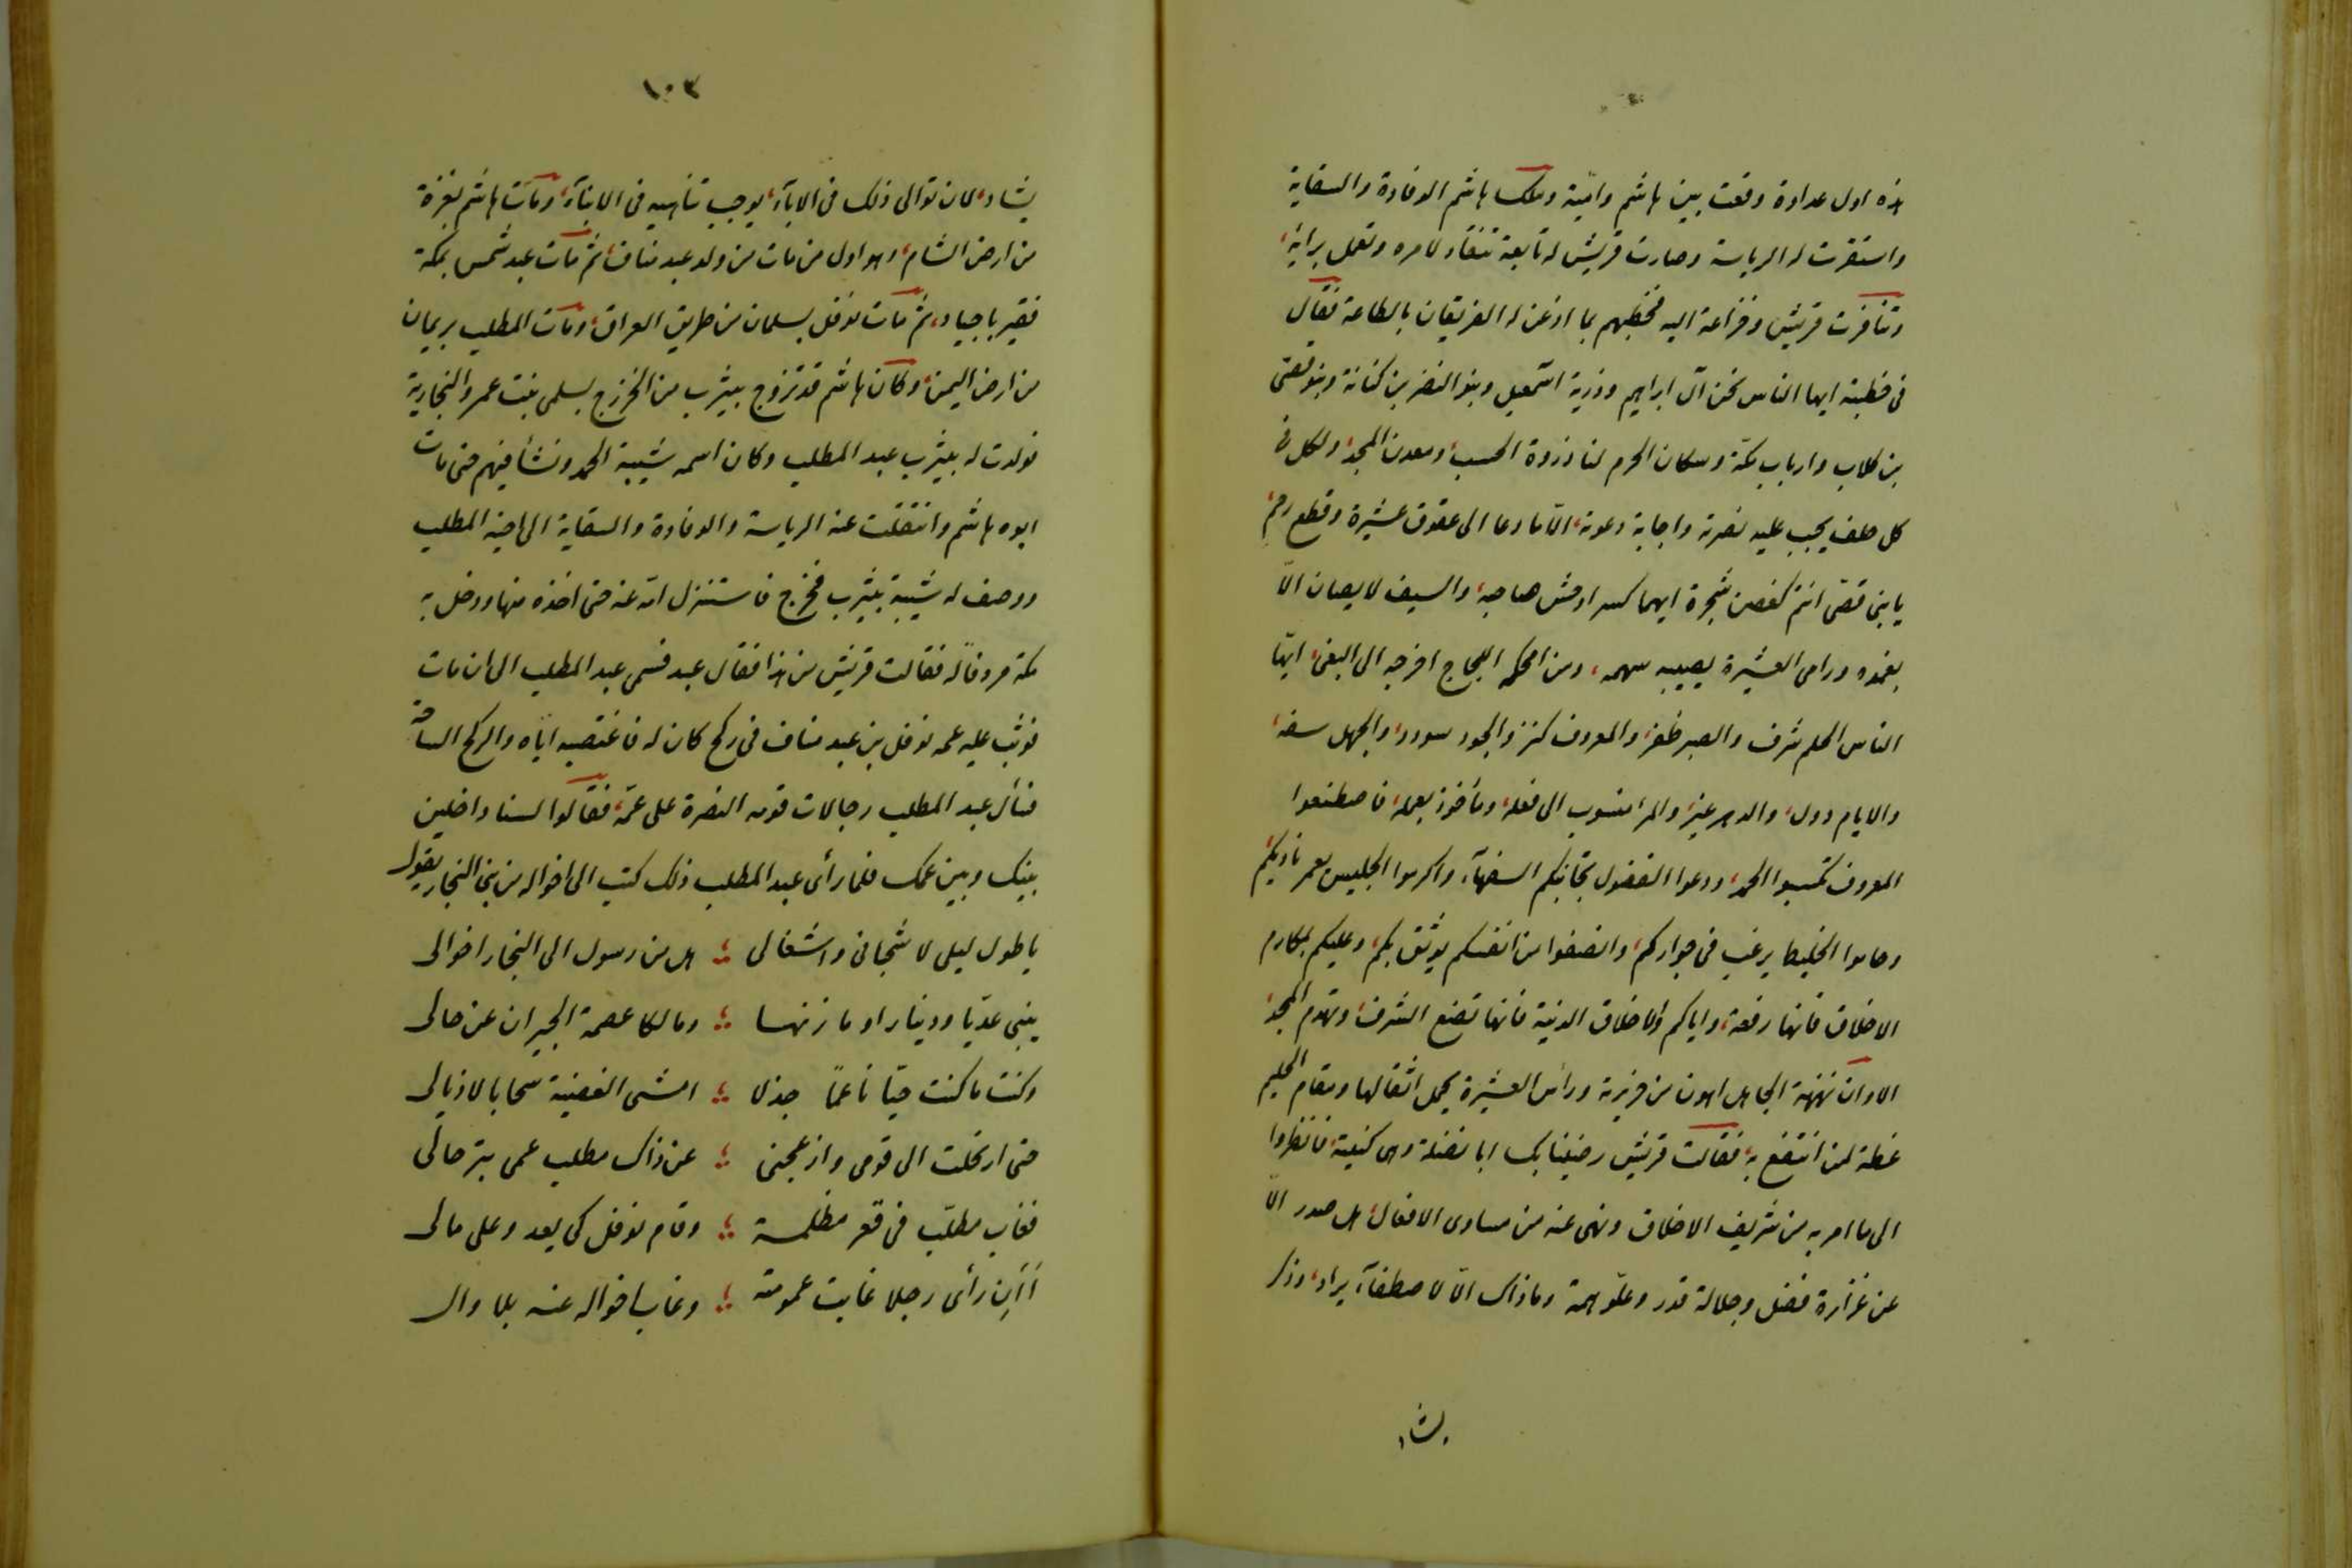 هذه اول عداوة وقعت بين هاشم واميّة وملك هاشم الوفادة والسقاية
واستقرت له الرياسة وصارت قريش له تابعة تنقاد لامره وتعمل برايه
وتنافرت قريش وخزاعة اليه فخطبهم بما اذعن له الفريقان بالطاعة فقال
فى خطبته ايها الناس نحن آل ابراهيم وذرية اسمعيل وبنو النضر بن كنانة وبنو قصى
بن كلاب وارباب مكة وسكان الحرم لنا ذروة الحسب ومعدن المجد ولكل فى
كل حلف يجب عليه نصرته واجابة دعوته الّا ما دعا الى عقوق عشيرة وقطع رحم
يا بنى قصى انتم كغصن شجرة ايهما كسر اوحش صاحبه والسيف لا يصان الّا
بغمده ورامى العشيرة يصيبه سهمه ومن امحكه اللجاج اخرجه الى البغى ايها
الناس الحلم شرف والصبر ظفر والمعروف كنز والجود سودد والجهل سفه
والايام دول والدهر غير والمرء منسوب الى فعله وماخوذ بعمله فاصطنعوا
المعروف تكسبوا الحمد ودعوا الفضول تجانبكم السفهآء واكرموا الجليس يعمر ناديكم
وحاموا الخليط يرغب فى جواركم وانصفوا من انفسكم يوثق بكم وعليكم بمكارم
الاخلاق فانها رفعة واياكم والاخلاق الدنية فانها تضع الشرف وتهدم المجد
الا وان نهنهة الجاهل اهون من جزيرته ورأس العشيرة يحمل اثقالها ومقام الحليم
عظة لمن انتفع به فقالت قريش رضينا بك ابا نضلة وهى كنيته فانظروا
الى ما امر به من شريف الاخلاق ونهى عنه من مساوى الافعال هل صدر الّا
عن غزارة فضل وجلالة قدر وعلو همة وما ذاك الّا لاصطفآء يراد وذكر
يشاد
١٠٣
يشاد لان توالى ذلك فى الابآء يوجب تناهيه فى الابنآء ومات هاشم بغزة
من ارض الشام وهو اول من مات من ولد عبد مناف ثم مات عبد شمس بمكة
فقبر باجياد ثم مات نوفل بسلمان من طريق العراق ومات المطلب بريمان
من ارض اليمن وكان هاشم قد تزوج بيثرب من الخزرج بسلمى بنت عمرو النجارية
فولدت له بيثرب عبد المطلب وكان اسمه شيبة الحمد ونشأ فيهم حتى مات
ابوه هاشم وانتقلت عنه الرياسة والوفادة والسقاية الى اخيه المطلب
ووصف له شيبة بيثرب فخرج فاستنزل امّه عنه حتى اخذه منها ودخل به
مكة مردفاً له فقالت قريش من هذا فقال عبد فسمى عبد المطلب الى ان مات
فوثب عليه عمه نوفل بن عبد مناف فى ركح كان له فاغتصبه اياه والركح الساحة
فسأل عبد المطلب رجالات قومه النصرة على عمّه فقالوا لسنا داخلين
بينك وبين عمك فلما رأى عبد المطلب ذلك كتب الى اخواله من بنى النجار يقول
يا طول ليلى لاشجانى واشغالى هل من رسول الى النجار اخوالى
ينبى عديّا ودينارا ومازنها ومالكا عصمة الجيران عن حالى
وكنت ما كنت حيّا ناعمًا جذلا امشى الغضنة سحابا لاذيالى
حتى ارتحلت الى قومى وازعجنى عن ذاك مطلب عمى بترحالى
فغاب مطلّب فى قعر مظلمة وقام نوفل كى يعدو على مالى
أأن رأى رجلا غابت عمومته وغاب اخواله عنه بلا وال